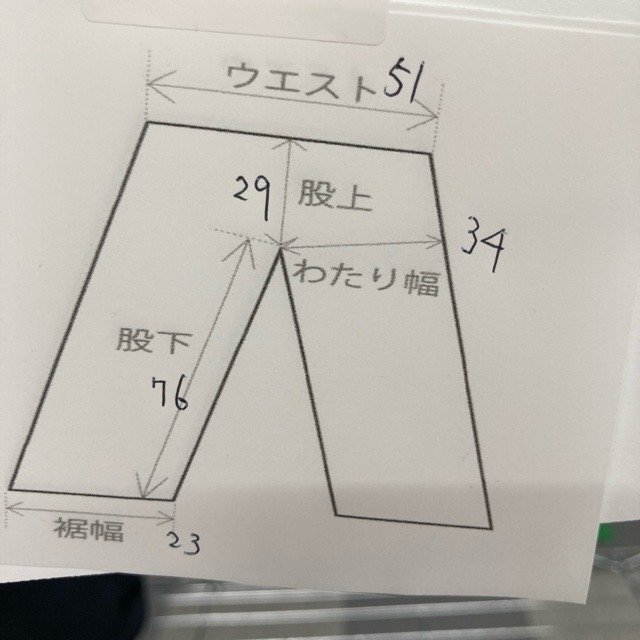 ウエスト51
29 股上
34
わたり幅
股下
76
裾幅 23